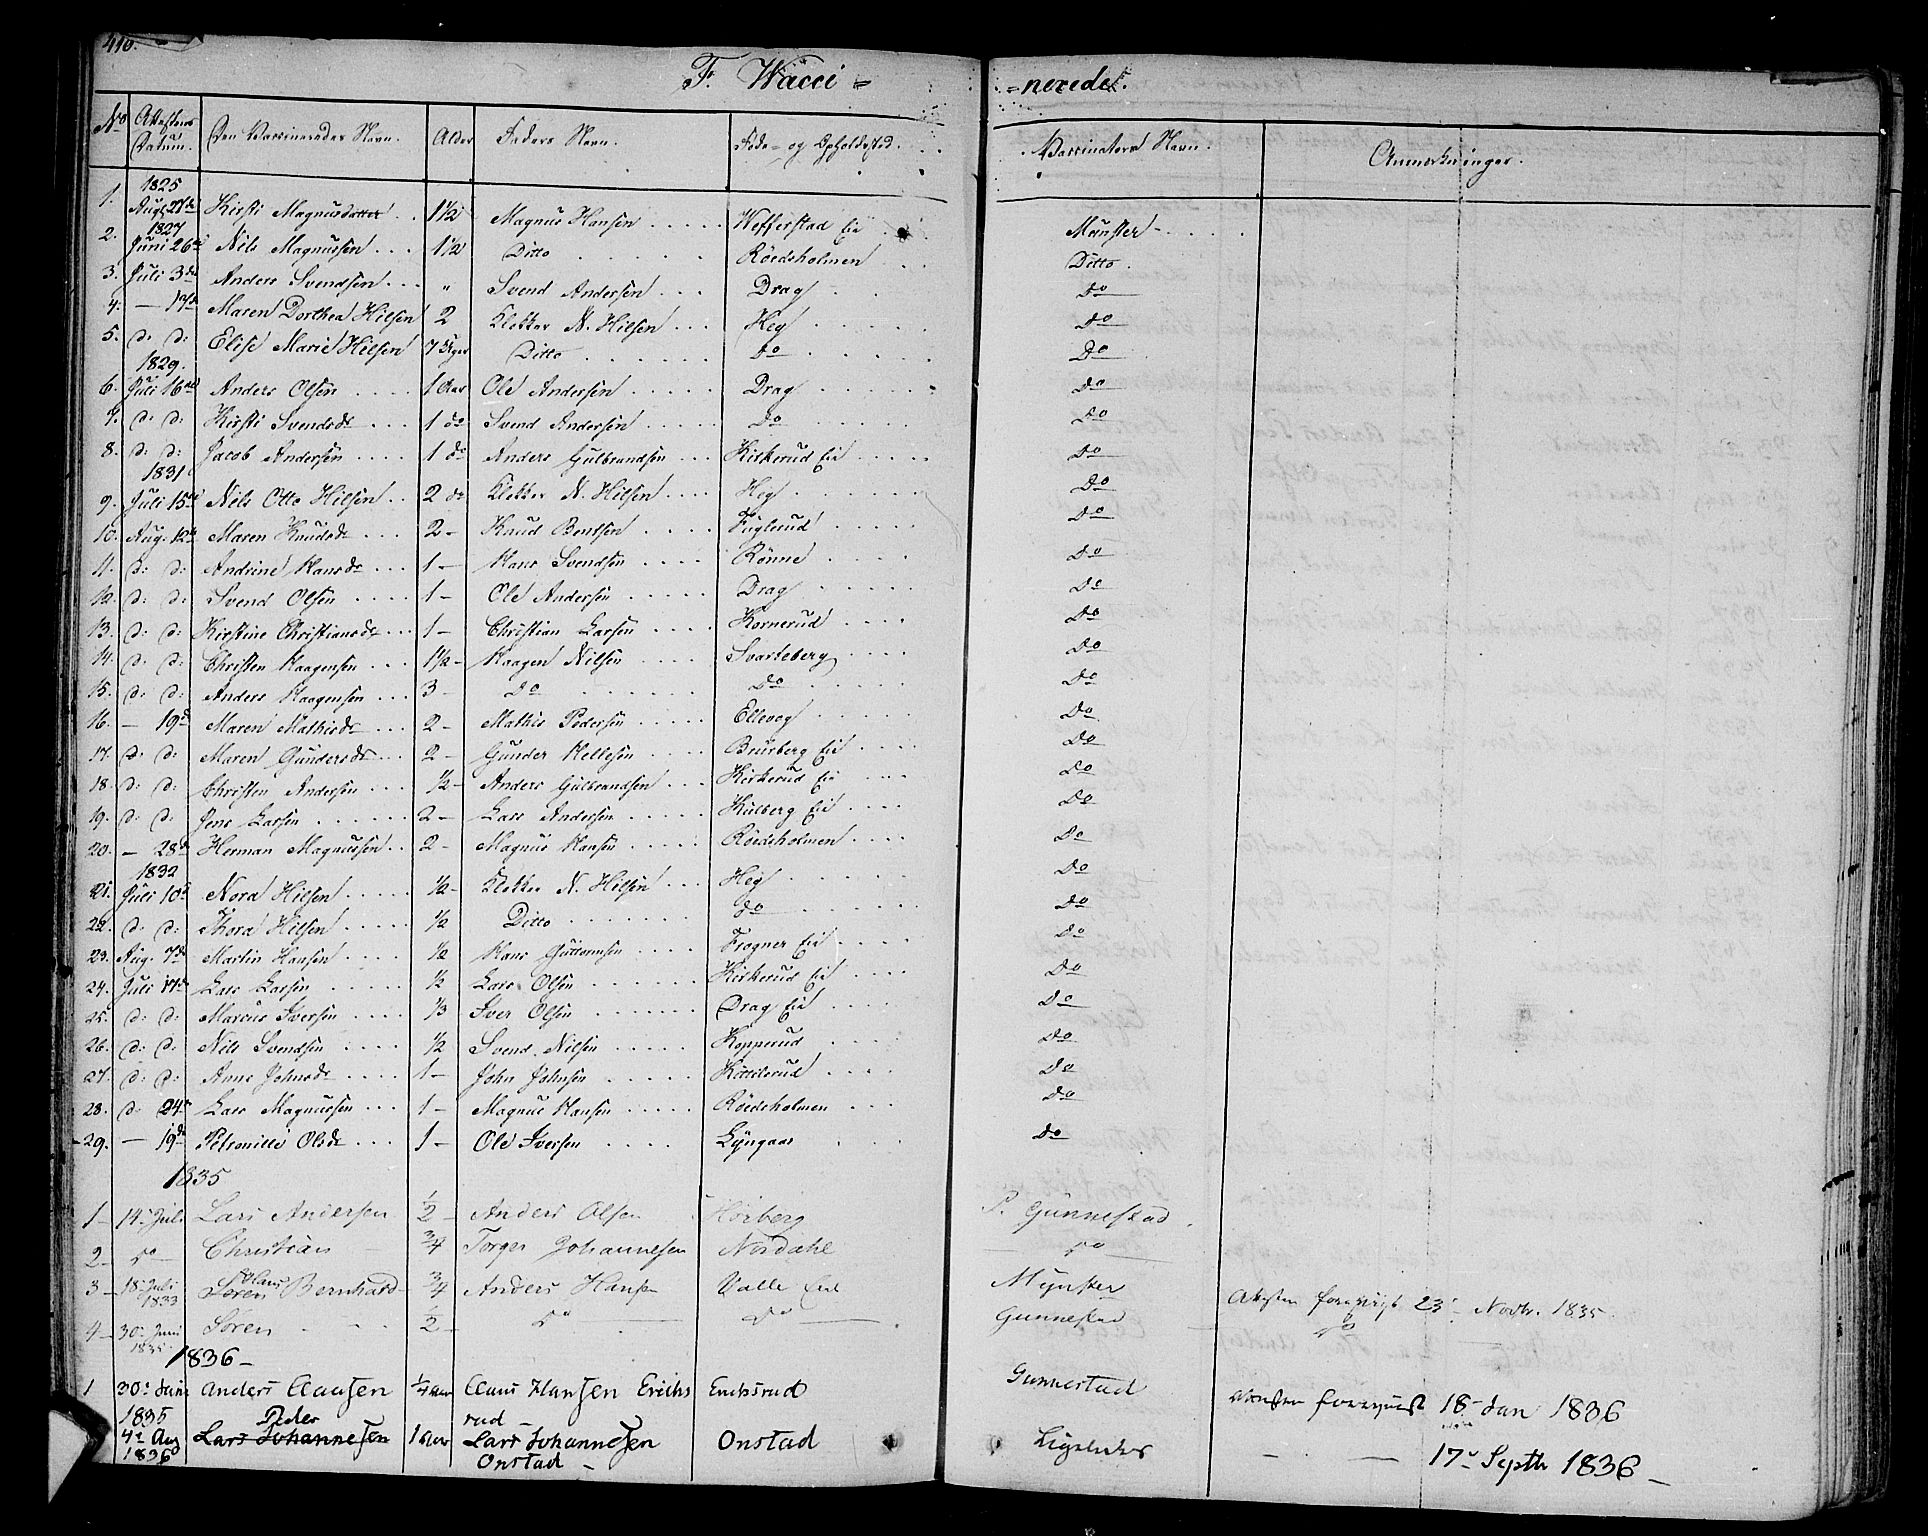 410.
F. Wacci = = nerede.
No Attestens Datum. Den Vaccineredes Navn. Alder Faders Navn. Føde- og Opholdssted. Vaccinateurs Navn. Anmærkninger.
1825
1. Aug. 27de Kirsti Magnusdatter . . 1½ Magnus Hansen . . . . . Wefferstad Eie Münster - . . . .
1827
2. Juni 26de Nils Magnussen . . . 1½ Ditto . . . . . . Röedsholmen . . Ditto.
3. Juli 3de Anders Svendsen . . . " Svend Andersen . . . Drag . . Do
4. — 17de Maren Dorthea Hilsen 2 Klokker N. Hilsen . . . Heg . . . . . Do
5. d: d: Elise Marie Hilsen 7 Uger Ditto . . . . . . Do . . . . . Do
1829.
6. Juli 16de Anders Olsen . . . . 1 Aar Ole Andersen . . . . . Drag . . . . . Do
7. d: d: Kirsti Svendsdr . . . 1 do Svend Andersen . . . . . Do . . . . . Do
8. d: d: Jacob Andersen . . . . 1 do Anders Gulbrandsen . . . Kirkerud Eie . . . . . Do
1831
9. Juli 15de Nils Otto Hilsen . . 2 do Klokker N. Hilsen . . . . Heg . . . . . Do
10. Aug. 12te Maren Knudsdr . . . 2 - Knud Bentsen . . . . Fuglerud . . . . . Do
11. d: d: Andrine Hansdr . . . 1 - Hans Svendsen . . . . Rönne . . . . Do
12. d: d: Svend Olsen . . . . 1 - Ole Andersen . . . . . Drag . . . . . Do
13. d: d: Kirstine Christiansdr . . . 1 - Christian Larsen . . . . Kornerud . . . . Do
14. d: d: Christen Haagensen . . . 1½ - Haagen Nilsen . . . . . Svarteberg . . . . Do
15. d: d: Anders Haagensen . . . 3 - Do . . . . . . Do . . . . . Do
16. — 19de Maren Mathisdr . . . 2 - Mathis Pedersen . . . . Ellevog . . . . . Do
17. d: d: Maren Gundersdr . . . 2 - Gunder Kettesen . . . . Brürberg Eie . . . . Do
18. d: d: Christen Andersen . . . ½ - Anders Gulbrandsen . . . . Kirkerud Eie . . . Do
19. d: d: Jens Larsen . . . . . . 2 - Lars Andersen . . . . . Kulberg Eie . . . . Do
20. — 28de Herman Magnussen . . 2 - Magnus Hansen . . . . . Röedsholmen . . . . Do
1832
21. Juli 10de Nora Hilsen . . . . . ½ - Klokker N. Hilsen . . . Heg . . . . . Do
22. d: d: Thora Hilsen . . . . ½ Ditto . . . . . . . do . . . . . Do
23. Aug. 7de Martin Hansen . . . . ½ Hans Guttormsen . . . . Frogner Eie . . . . Do
24. Juli 17de Lars Larsen . . . . ½ Lars Olsen . . . . . . Kirkerud Eie . . . . Do
25. d: d: Marcus Iversen . . . . ⅓ Iver Olsen . . . . . . . Drag Eie . . . . Do
26. d: d: Nils Svendsen . . . . ½ Svend Nilsen . . . . . Kopperud . . . . Do
27. d: d: Anne Johnsdr . . . . 1 - John Johnsen . . . . . Kittilsrud . . . . Do
28. d: 24de Lars Magnussen . . . 1 - Magnus Hansen . . . . Röedsholmen . . . Do
29. — 19de Petronille Olsdr . . . . 1 - Ole Iversen . . . . . Lyngaas . . . . Do
1835
1 - 14. Juli Lars Andersen ½ - Anders Olsen Horberg P. Gunnestad
2 - Do - Christian ¾ Torger Johannesen Nordahl Do
3 - 18. Juli 1833 Sören Bernhard ¾ Anders Hansen Valle Eie Mynster Attesten foreviist 23. Novbr. 1835.
4 - 30. Juni 1835 Sören ½ - Do Do Gunnestad Do
1836 -
1 30. Juni 1835 Anders Clausen ¼ Aar Claus Hansen Erichs rud Erichsrud Gunnestad Attesten foreviist 18 - Jan 1836
4. Aug 1836 Peder Lars Johannesen 1 Aar Lars Johannesen Onstad Onstad Ligeledes — — 17. Septbr 1836 -